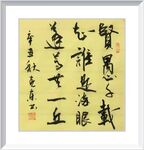 賢愚千載
知誰是滿眼
蓬蒿共一丘
秋